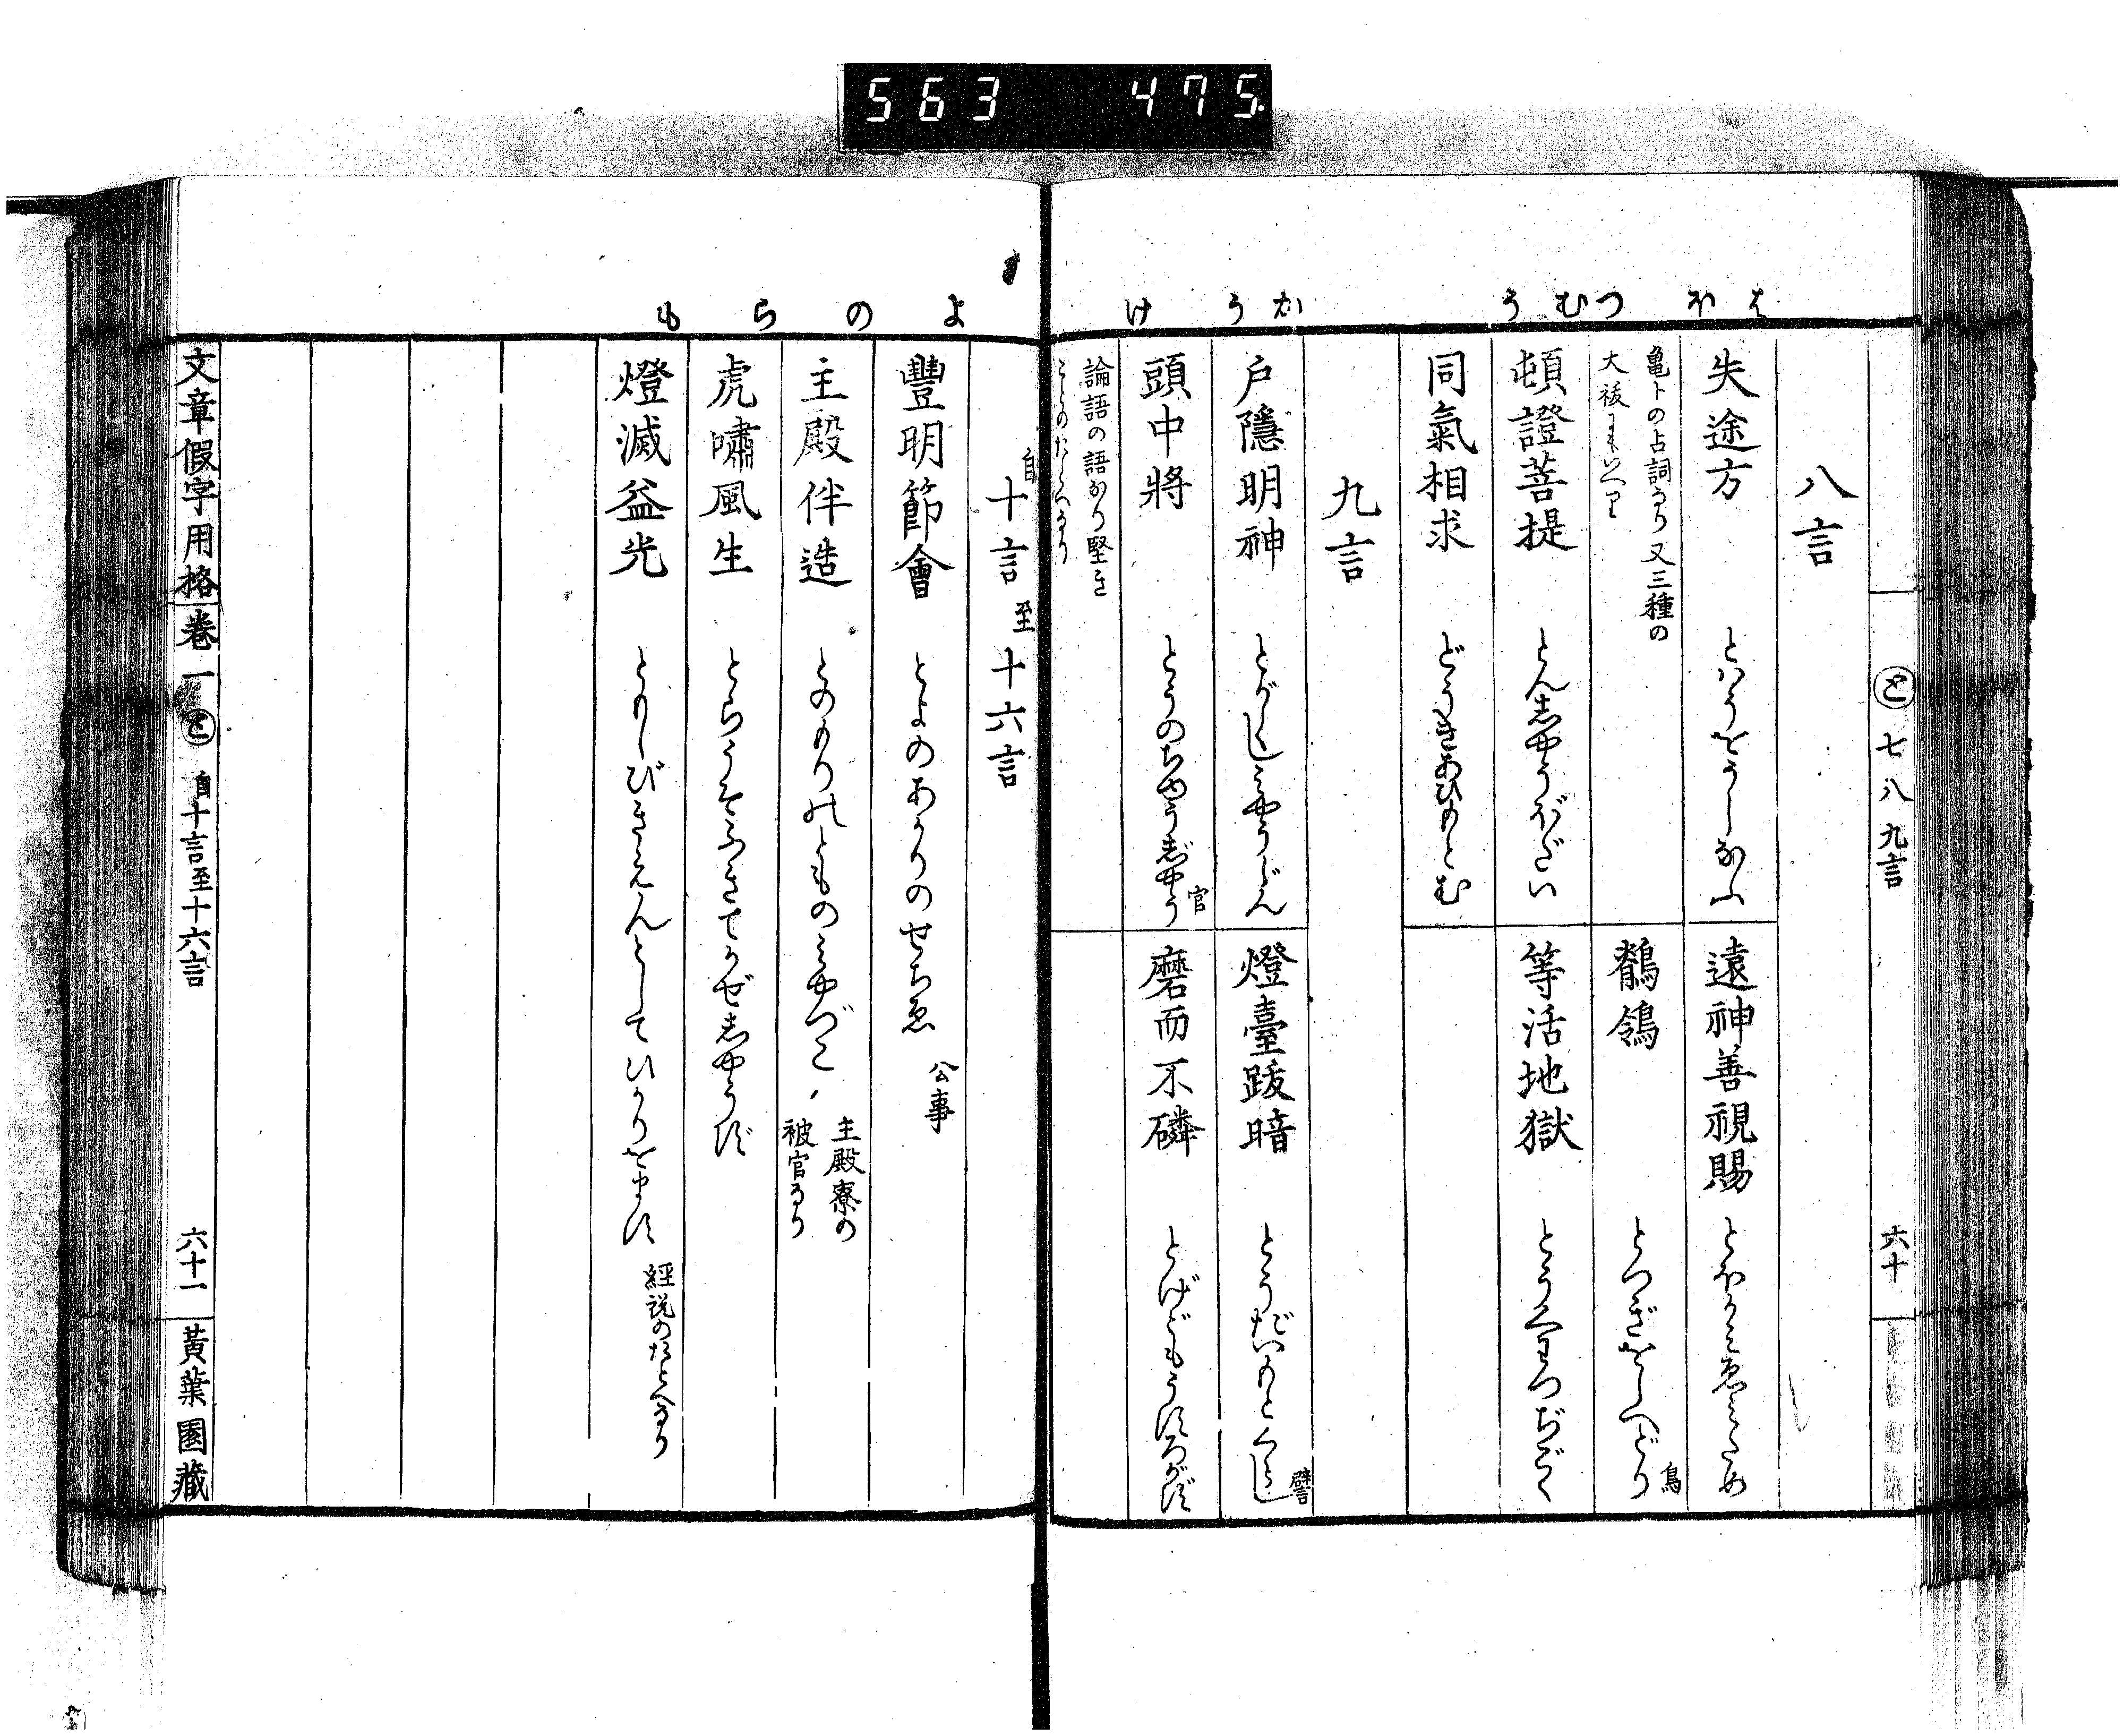 563 475
はほ つむう かう け
㋣ 七八九言 六十
八言
失途方 とはうをうしなふ
遠神善視賜 とほかみゑみため
亀卜の占詞なり又三種の
大祓にもいへり
鶺鴒 とつぎをしへどり 鳥
頓證菩提 とんしやうぼだい
等活地獄 とうくわつぢごく
同氣相求 どうきあひもとむ
九言
戸隱明神 とがくしミやうじん
燈臺跋暗 とうだいもとくらし 譬
頭中將 とうのちゆうじやう 官
磨而不磷 とげどもうすろがず
論語の語なり堅き
こゝろのたとへなり
よ の ら も
自十言至十六言
豐明節會 とよのあかりのせちゑ 公事
主殿伴造 とのもりのとものミやづこ
主殿寮の
被官なり
虎嘯風生 とらうそふきてかぜしやうず
燈滅益光 ともしびきえんとしてひかりをます 經説のたとへなり
文章假字用格 卷一 ㋣ 自十言至十六言 六十一 黃葉園藏